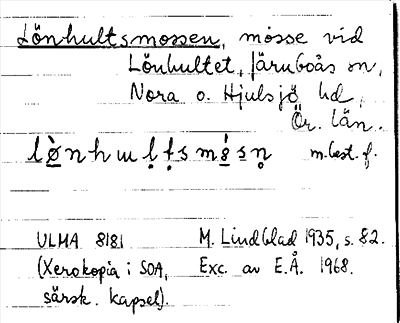 Lönhultsmossen, mosse vid
Lönhultet, Järnboås sn,
Nora o. Hjulsjö hd,
Ör. län.
m. best. f.
ULMA 8181 M. Lindblad 1935, s. 82.
(Xerokopia i SOA, Exc. av E.Å. 1968.
särsk. kapsel).